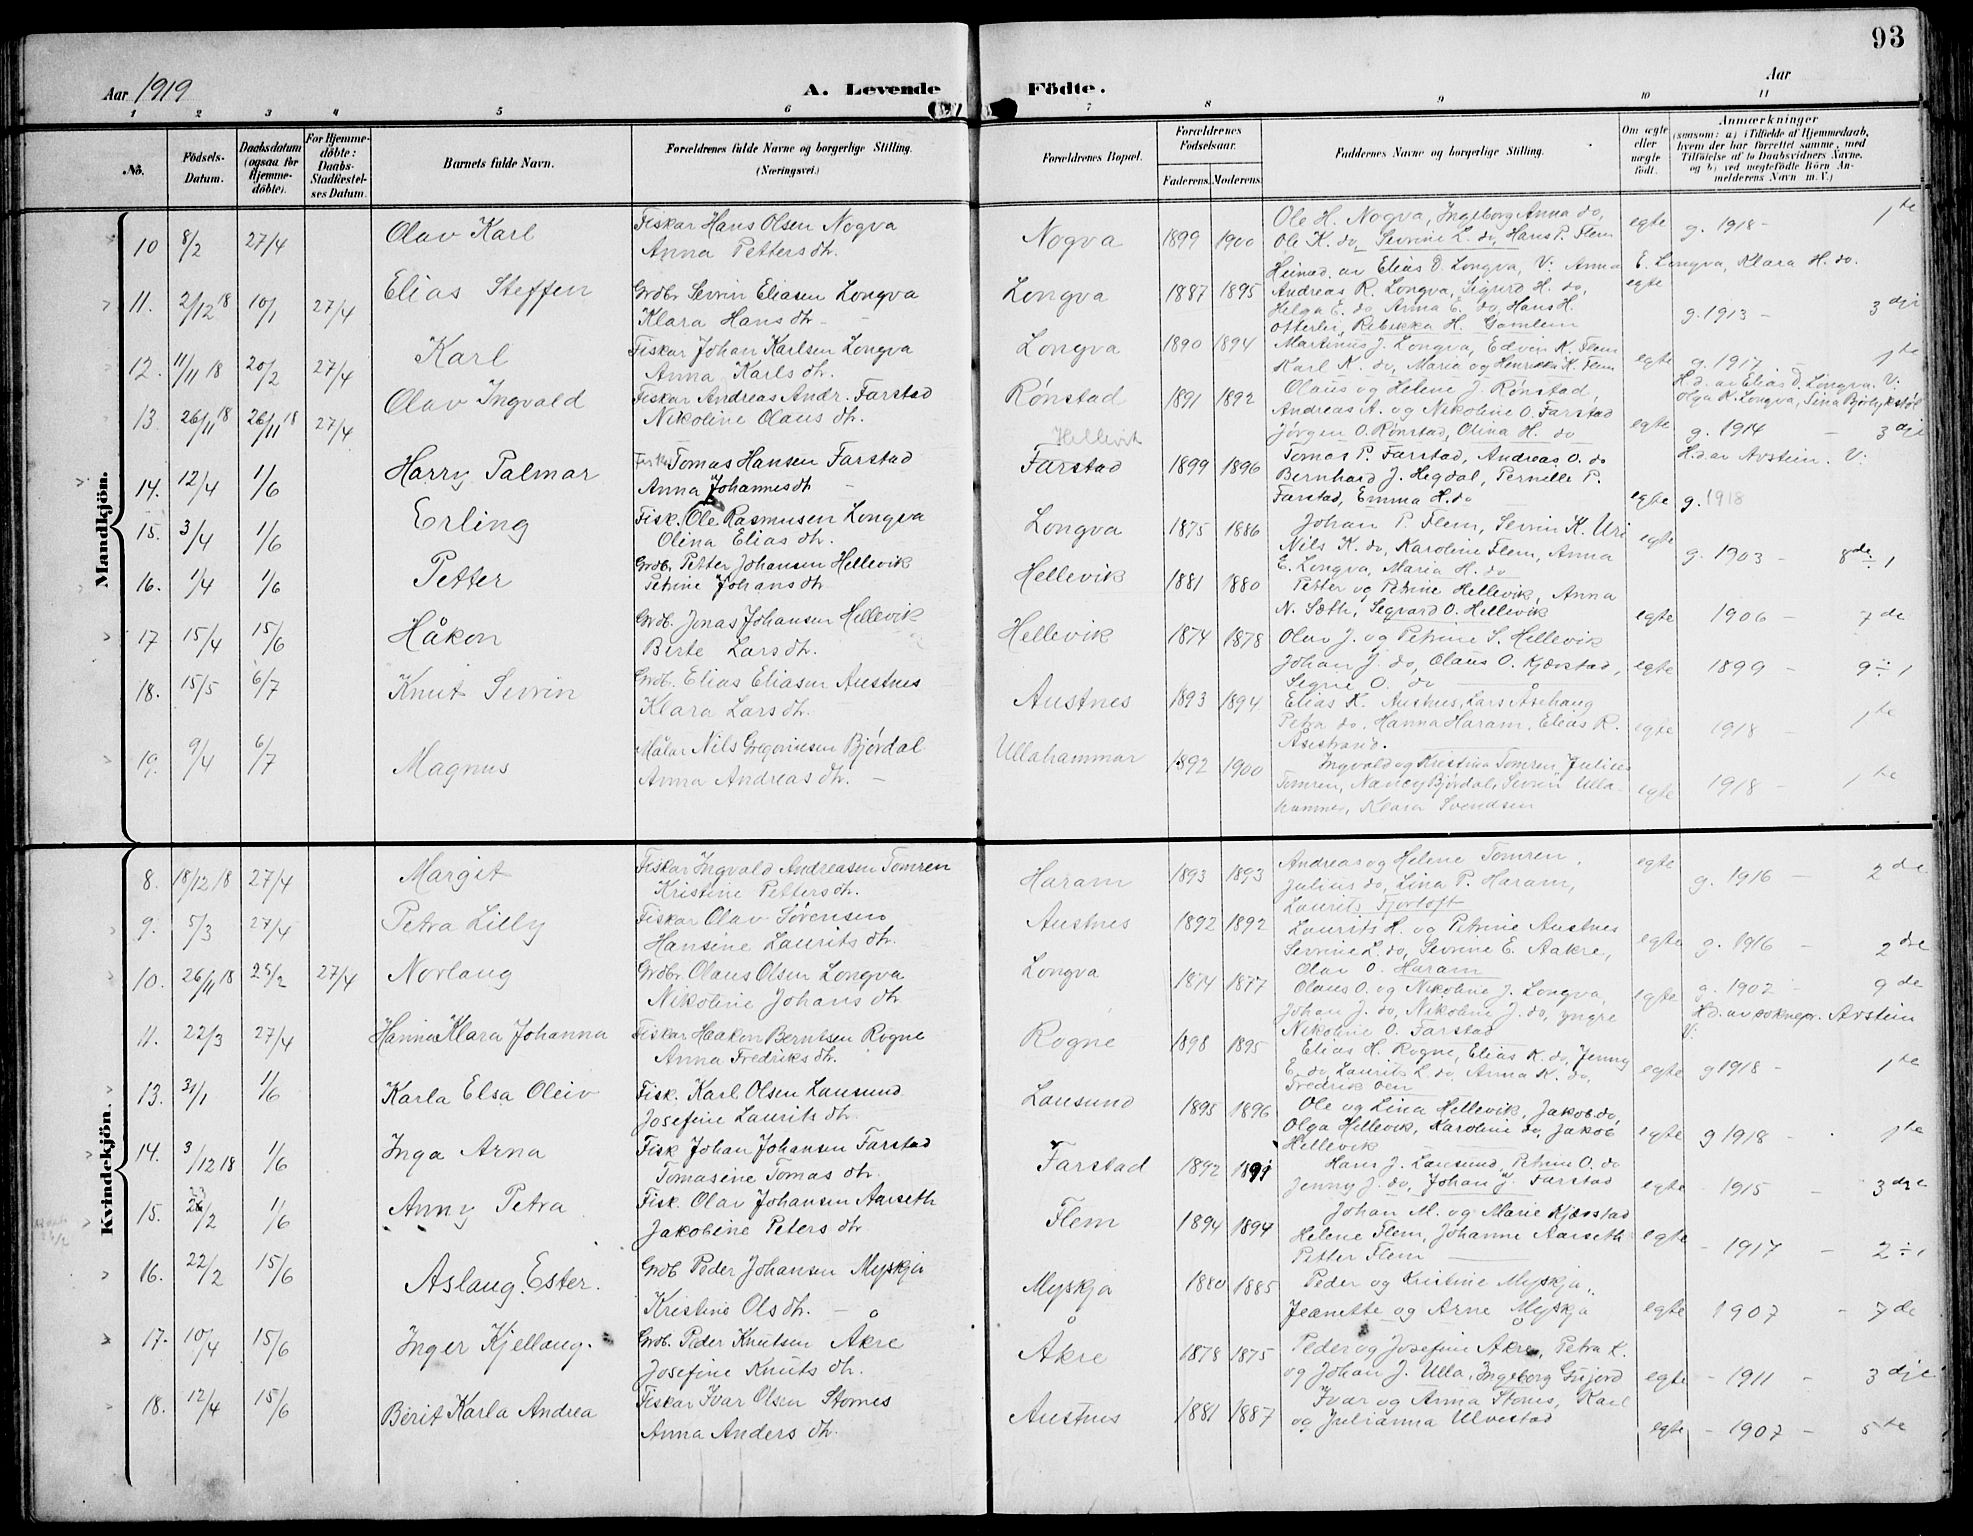 93
Aar 1919
A. Levende Födte.
Aar
1 2 3 4 5 6 7 8 9 10 11
No.
Födsels-Datum.
Daabsdatum (ogsaa for Hjemmedöbte).
For Hjemmedöbte: Daabs-Stadfæstelses Datum.
Barnets fulde Navn.
Forældrenes fulde Navne og borgerlige Stilling. (Næringsvei.)
Forældrenes Bopæl.
Forældrenes Födselsaar.
Faderens. Moderens.
Faddernes Navne og borgerlige Stilling.
Om ægte eller uægte födt.
Anmerkninger (saasom: a) i Tilfælde af Hjemmedaab, hvem der har forrettet samme, med Tilföielse af to Daabsvidners Navne, og b) ved uægtefödte Börn Anmelderens Navn m. V.)
Mandkjön.
10 8/2 27/4 Olav Karl Fiskar Hans Olsen Nogva Nogva 1899 1900 Ole H. Nogva, Ingeborg Anna do, egte g. 1918 - 1te
Anna Petters dtr. Ole K. do, Sevrine L. do, Hans P. Flem
Heimd. av Elias D. Longva, V: Anna E. Longva, Klara H. do.
11. 2/12 18 10/1 27/4 Elias Steffen Grdbr Sevrin Eliasen Longva Longva 1887 1895 Andreas R. Longva, Sigurd H. do, egte g. 1913 - 3dje
Klara Hans dtr. - Helga E. do, Anna E. do, Hans H.
Otterlei, Rebekka H. Gamlem
12. 11/11 18 20/2 27/4 Karl Fiskar Johan Karlsen Longva Longva 1890 1894 Martinus J. Longva, Edvin K. Flem egte g. 1917 - 1te
Anna Karls dtr. Karl K. do, Maria og Henrikka K. Flem
13. 26/11 18 26/11 18 27/4 Olav Ingvald Fiskar Andreas Andr. Farstad Rønstad 1891 1892 Olaus og Helene J. Rønstad, H.d. av Elias D. Longva. V:
Nikoline Olaus dtr. Andreas A. og Nikoline O. Farstad Olga K. Longva, Sina
Jørgen O. Rønstad, Olina H. do egte g. 1914 - 3dje
Hellevik
14. 12/4 1/6 Harry Palmar Fisk. Tomas Hansen Farstad Farstad 1899 1896 Tomas P. Farstad, Andreas O. do H.d. av Avstein. V:
Anna Johannes dtr - Bernhard J. Hegdal, Pernille P.
Farstad, Emma H. do egte g. 1918
15. 3/4 1/6 Erling Fisk. Ole Rasmusen Longva Longva 1875 1886 Johan P. Flem, Sevrin K. Uri egte g. 1903 - 8de ÷ 1
Olina Elias dtr. Nils K. do, Karoline Flem, Anna
E. Longva, Maria H. do
16. 1/4 1/6 Petter Grdb. Petter Johansen Hellevik Hellevik 1881 1880 Petter og Petrine Hellevik, Anna
Petrine Johans dtr N. Sæth, Segvard O. Hellevik egte 1906 - 7de
17 15/4 15/6 Håkon Grdb. Jonas Johansen Hellevik Hellevik 1874 1878 Olav J. og Petrine S. Hellevik
Birte Lars dtr. Johan J. do, Olaus O. Kjærstad, egte 1899 - 9 ÷ 1
Signe O. do
18. 15/5 6/7 Knut Sevrin Grdb. Elias Eliasen Austnes Austnes 1893 1894 Elias K. Austnes, Lars Åsehaug
Klara Lars dtr. Petra do, Hanna Haram, Elias R. egte 1918 - 1te
Åsestrand.
19. 9/4 6/7 Magnus Målar Nils Gregoriusen Bjørdal Ullahammar 1892 1900 Ingvald og Kristina Tomren, Julius
Anna Andreas dtr. - Tomren, Nancy Bjørdal, Sevrin Ulla- egte 1918 - 1te
hammer, Klara Svendsen
Kvindekjön.
8. 18/12 18 27/4 Margit Fiskar Ingvald Andreasen Tomren Haram 1893 1893 Andreas og Helene Tomren, egte g. 1916 - 2den
Kristine Petters dtr. Julius do, Lina P. Haram,
Laurits Fjørtoft
9. 5/3 27/4 Petra Lilly Fiskar Olav Sørensen Austnes 1892 1892 Laurits H. og Petrine Austnes
Hansine Laurits dtr. Sevrine L. do, Sevrine E. Aakre, egte g. 1916 - 2dre
Olav O. Haram
10. 26/11 18 25/2 27/4 Norlaug Grdbr. Olaus Olsen Longva Longva 1874 1877 Olaus O. og Nikoline J. Longva, egte g. 1902 - 9de
Nikoline Johans dtr Johan J. do, Nikoline J. do, yngre H.d. av soknepr. Avstein
Nikoline O. Farstad V:
11. 22/3 27/4 Hanna Klara Johanna Fiskar Haakon Berntsen Rogne Rogne 1898 1895 Elias H. Rogne, Elias K. do, Jenny
Anna Fredriks dtr. E. do, Laurits L. do, Anna K. do, egte g 1918 - 1te
Fredrik Oen
13. 31/1 1/6 Karla Elsa Oleiv Fisk. Karl Olsen Lausund Lausund 1895 1896 Ole og Lina Hellevik, Jakob do,
Josefine Laurits dtr Olga Hellevik, Karoline do, Jakob egte g 1918 - 1te
Hellevik
14. 3/12 18 1/6 Inga Arna Fisk Johan Johansen Farstad Farstad 1892 1891 Hans J. Lausund, Petrine O. do
Tomasine Tomas dtr. Jenny J. do, Johan J. Farstad egte - 1915 - 3dje
15. 1/6 Anny Petra Fisk. Olav Johansen Aarseth Flem 1894 1894 Johan M. og Marie Kjærstad
Jakobine Peters dtr Helene Flem, Johanne Aarseth egte - 1917 - 2 ÷ 1
Petter Flem
16. 22/2 15/6 Aslaug Ester. Grdb Peder Johansen Myskja Myskja 1880 1885 Peder og Kristine Myskja,
Kristine Ols dtr. - Jeanette og Arne Myskja egte - 1907 - 7de
17. 10/4 15/6 Inger Kjellaug. Grdb. Peder Knutsen Åkre Åkre 1878 1875 Peder og Josefine Åkre, Petra K.
Josefine Knuts dtr. og Johan J. Ulla, Ingeborg Gisjord egte - 1911 - 3dje
18. 12/4 15/6 Berit Karla Andrea Fiskar Ivar Olsen Stornes Austnes 1881 1887 Ivar og Anna Stornes, Karl
Anna Anders dtr. og Julianna Ulvestad egte - 1907 - 5te